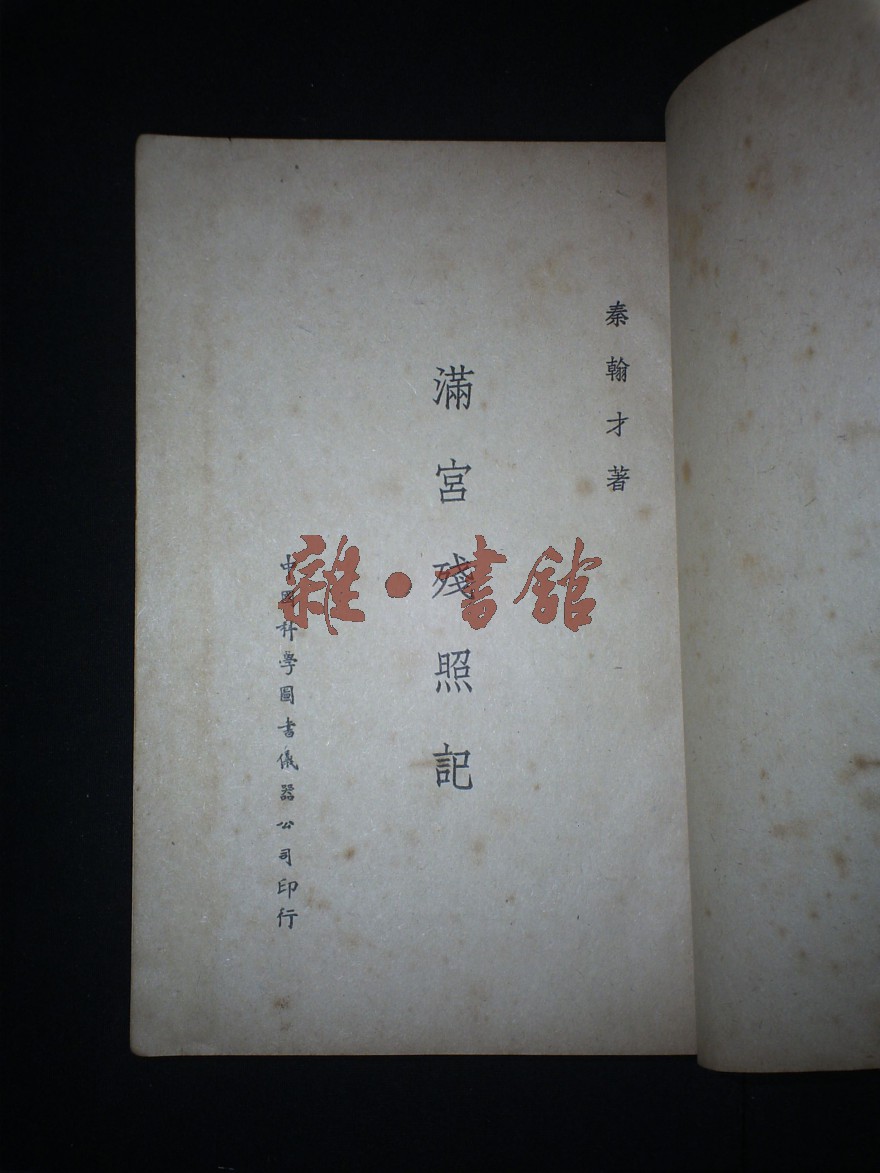 秦翰才著
滿宮殘照記
中國科學圖書儀器公司印行
雜·書館